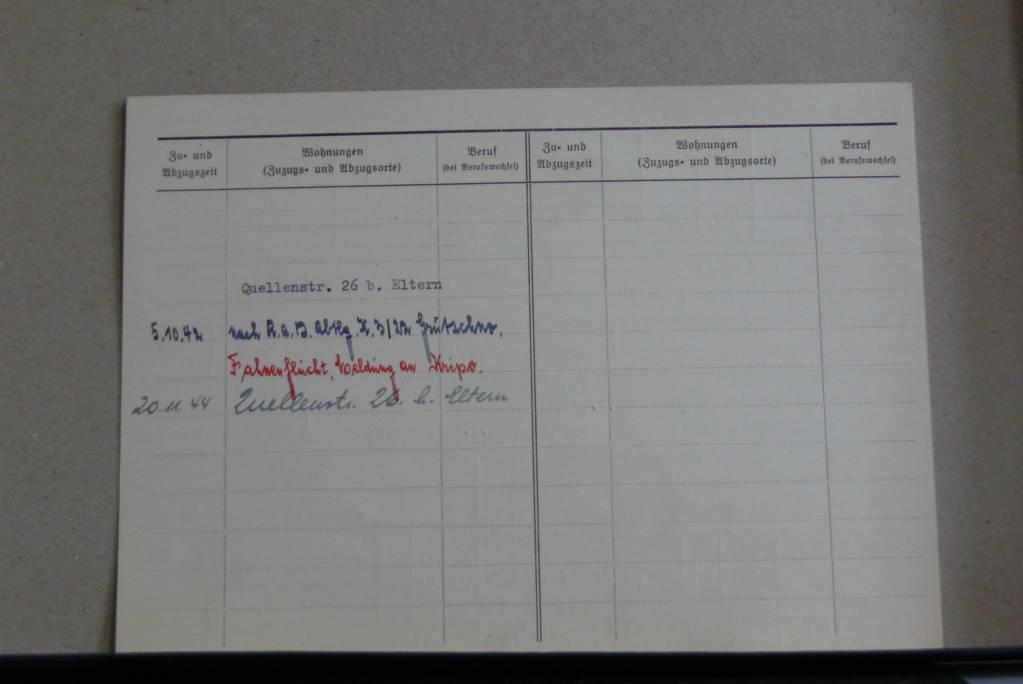 Zu- und Abzugszeit
Wohnungen
(Zuzugs- und Abzugsorte)
Beruf
(bei Berufswechsel)
Zu- und Abzugszeit
Wohnungen
(Zuzugs- und Abzugsorte)
Beruf
(bei Berufswechsel)
Quellenstr. 26 b. Eltern
5.10.42 nach R.A.D. Abtlg. K. 3/22
Fahnenflucht, Meldung an Kripo.
20.11.44 Quellenstr. 26. b. Eltern